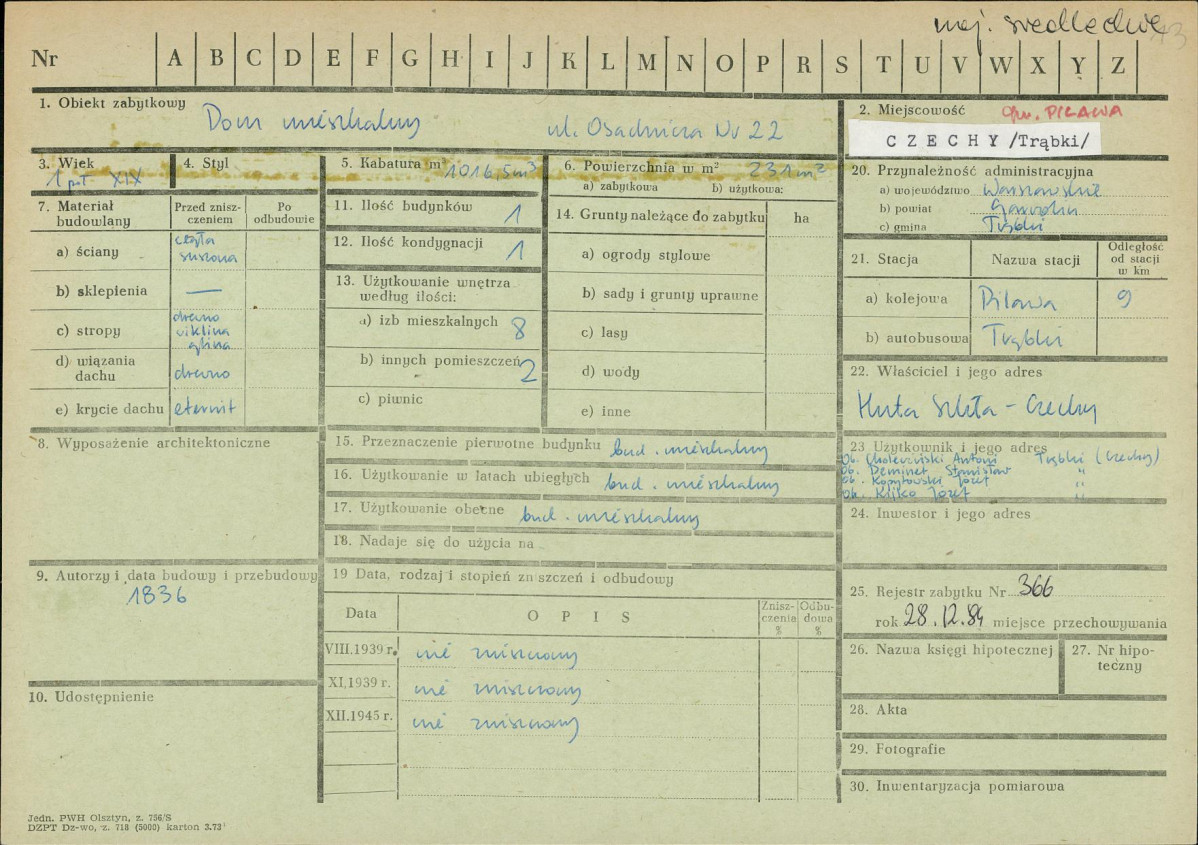 woj. siedleckie
Nr A B C D E F G H I J K L M N O P R S T U V W X Y Z
1. Obiekt zabytkowy
Dom mieszkalny ul. Osadnicza Nr 22
2. Miejscowość gm. PILAWA
CZECHY /Trąbki/
3. Wiek
1 poł XIX
4. Styl
5. Kabatura m³ 1016,5 m³
6. Powierzchnia w m² 231 m²
a) zabytkowa b) użytkowa:
7. Materiał budowlany
Przed znisz-czeniem
Po odbudowie
a) ściany
cegła
suszona
b) sklepienia —
c) stropy
drewno
wiklina
glina
d) wiązania dachu drewno
e) krycie dachu eternit
8. Wyposażenie architektoniczne
9. Autorzy i data budowy i przebudowy
1836
10. Udostępnienie
11. Ilość budynków 1
12. Ilość kondygnacji 1
13. Użytkowanie wnętrza
według ilości:
a) izb mieszkalnych 8
b) innych pomieszczeń 2
c) piwnic
14. Grunty należące do zabytku ha
a) ogrody stylowe
b) sady i grunty uprawne
c) lasy
d) wody
e) inne
15. Przeznaczenie pierwotne budynku bud. mieszkalny
16. Użytkowanie w latach ubiegłych bud. mieszkalny
17. Użytkowanie obecne bud. mieszkalny
18. Nadaje się do użycia na
19 Data, rodzaj i stopień zniszczeń i odbudowy
Data OPIS Znisz-czenia % Odbu-dowa %
VIII.1939 r. nie zniszczony
XI,1939 r. nie zniszczony
XII.1945 r. nie zniszczony
20. Przynależność administracyjna
a) województwo Warszawskie
b) powiat Garwolin
c) gmina Trąbki
21. Stacja Nazwa stacji Odległość od stacji w km
a) kolejowa Pilawa 9
b) autobusowa Trąbki
22. Właściciel i jego adres
Huta Szkła - Czechy
23 Użytkownik i jego adres
Ob. Antoni Trąbki (Czechy)
ob. Deminet Stanisław "
ob. Kopytowski Józef "
ob. Kliko Józef "
24. Inwestor i jego adres
25. Rejestr zabytku Nr 366
rok 28.12.84 miejsce przechowywania
26. Nazwa księgi hipotecznej
27. Nr hipo-teczny
28. Akta
29. Fotografie
30. Inwentaryzacja pomiarowa
Jedn. PWH Olsztyn, z. 756/S
DZPT Dz-wo, z. 718 (5000) karton 3.73